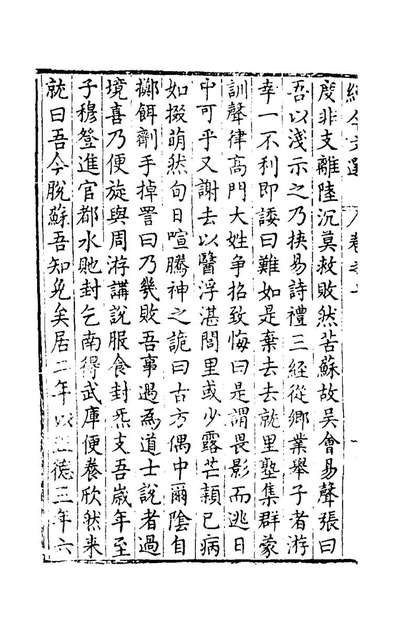 今文選 卷之
度非支離陸沉莫救敗然苦蘇故吳會易聲張曰
吾以淺示之乃挾易詩禮三經從鄉業舉子者游
幸一不利即諉曰難如是棄去去就里塾集群蒙
訓聲律高門大姓爭招致悔曰是謂畏影而逃日
中可乎又謝去以醫浮湛閭里或少露芒穎已病
如掇萌然旬日喧騰神之詭曰古方偶中爾陰自
擲餌劑手掉詈曰乃幾敗吾事過為道士說者過
境喜乃便旋與周游講說服食封炁支吾歲年至
子穆登進官都水貤封乞南得武庫便養欣然來
就曰吾今脫蘇吾知免矣居二年以正德三年六